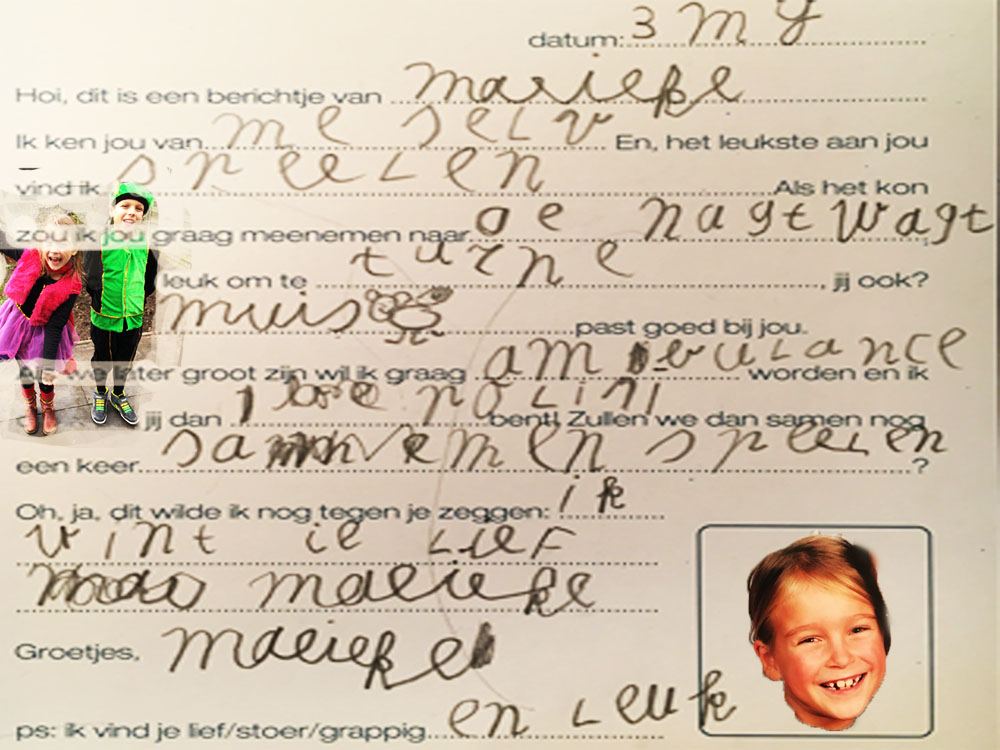 datum: 3 m y
Hoi, dit is een berichtje van marieke
Ik ken jou van me selv En, het leukste aan jou
vind ik speelen Als het kon
zou ik jou graag meenemen naar de nagtwagt
leuk om te turne, jij ook?
muis past goed bij jou.
Als we later groot zijn wil ik graag ambulance worden en ik
jij dan bent! Zullen we dan samen nog
een keer samemen speelen?
Oh, ja, dit wilde ik nog tegen je zeggen: ik
vint ie lief
marieke
Groetjes, marieke
ps: ik vind je lief/stoer/grappig en leuk